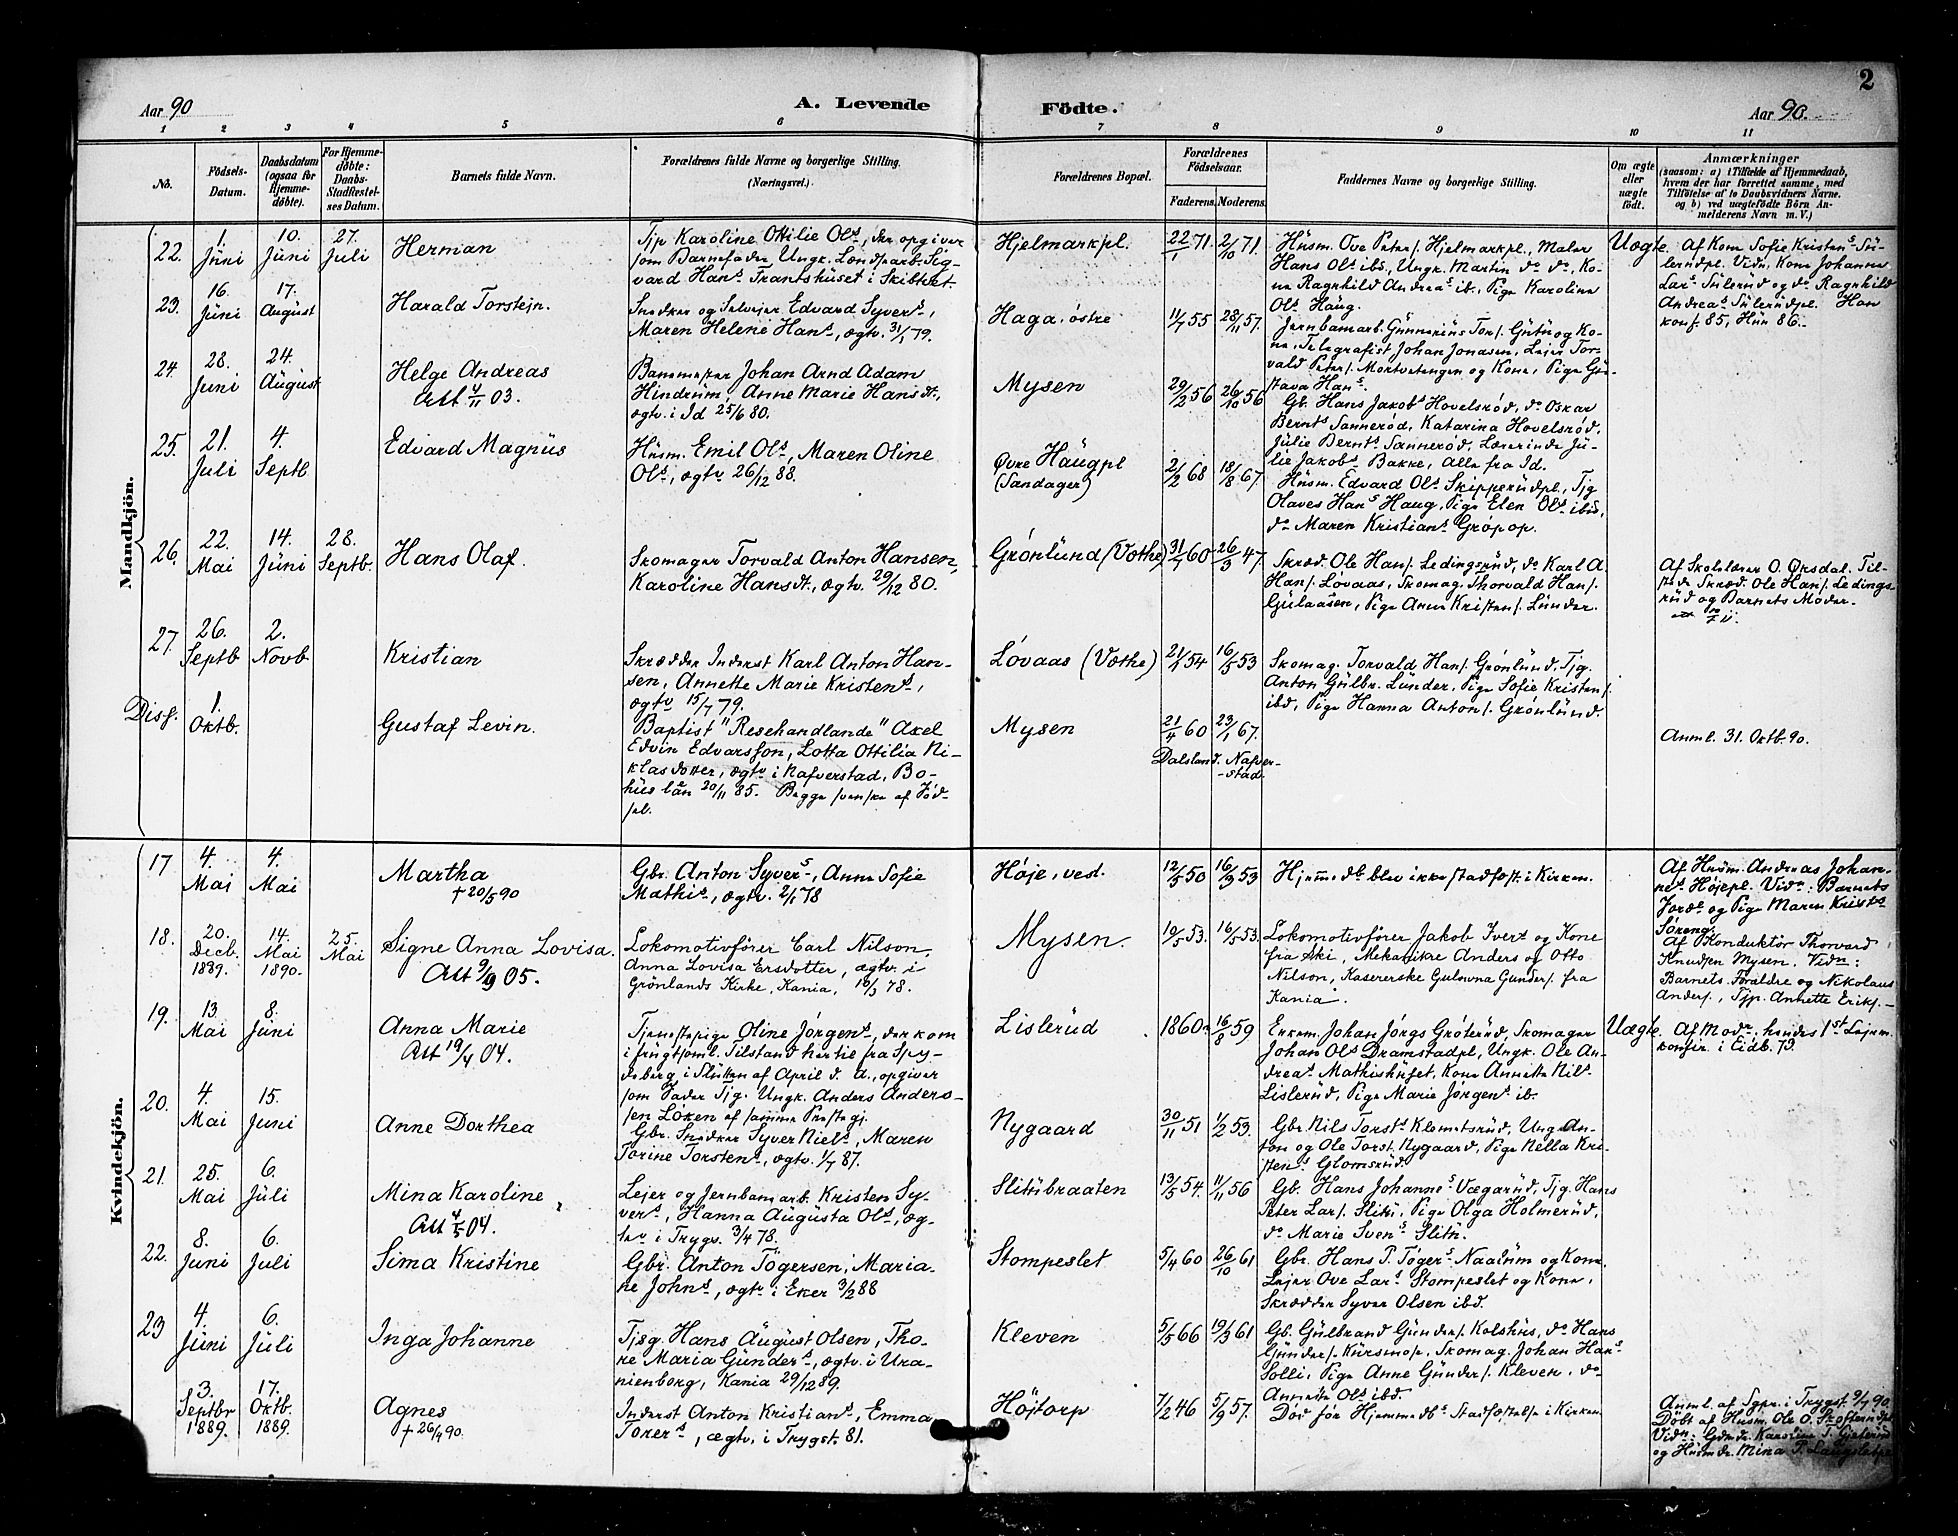 2
Aar 90
A. Levende
Födte.
Aar 90.
1 2 3 4 5 6 7 8 9 10 11
No.
Födsels-
Datum.
Daabsdatum
(ogsaa för
Hjemme-
döbte).
For Hjemme-
döbte:
Daabs-
Stadfæstel-
ses Datum.
Barnets fulde Navn.
Forældrenes fulde Navne og borgerlige Stilling.
(Næringsvei.)
Forældrenes Bopæl.
Forældrenes
Födselsaar.
Faderens.
Moderens.
Faddernes Navne og borgerlige Stilling.
Om ægte
eller
uægte
födt.
Anmærkninger
(saasom: a) i Tilfælde af Hjemmedaab,
hvem der har forrettet samme, med
Tilföielse af to Daabsvidners Navne.
og b) ved uægtefödte Börn An-
melderens Navn m. V.)
Mandkjön.
22. 1. Juni
10. Juni
27. Juli
Herman
Tjp Karoline Ottilie Ols., der opgiver
som Barnefader Ungk. Landarb. Sig-
vard Hans. Trantshuset i Skibtvet
Hjelmarkpl.
22/1 71.
2/10 71.
Husm. Ove Peters. Hjelmarkpl., Maler
Hans Ols ibd., Ungk. Martin do do, Ko-
ne Ragnhild Andreas ib., Pige Karoline
Ols. Haug.
Uægte
Af Kone Sofie Kristens Su-
lerudpl. Vidn. Kone Johanne
Lars Sulerud og do Ragnhild
Andreas Sulerudpl. Han
konf. 85, Hun 86.
23. 16. Juni
17. August
Harald Torstejn.
Snedker og Selvejer Edvard Syvers,
Maren Helene Hans, ægtv. 3/1 79.
Haga, østre
11/7 55
28/11 57.
Jernbanearb. Gunnerius Tors. og Ko-
ne, Telegrafist Johan Jonasen, Lejer Tor-
vald Peters. Mortvetengen og Kone, Pige Gu-
stava Hans.
24. 28. Juni
24. August
Helge Andreas
Att 4/11 03.
Banemester Johan Arnd Adam
Hindrum, Anne Marie Hansdt.,
ægtv. i Id 25/6 80.
Mysen
29/2 56
26/10 56
Gb. Hans Jakobs Hovelsrød, do Oskar
Bernts Sannerød, Katarina Hovelsrød,
Julie Bernts Sannerød, Lærerinde Ju-
lie Jakobs Bakke, Alle fra Id.
25. 21. Juli
4. Septb.
Edvard Magnus
Husm. Emil Ols, Maren Oline
Ols, ægtv. 26/12 88.
Øvre Haugpl
(Sandager)
2/2 68
18/8 67.
Husm. Edvard Ols Skipperudpl., Tjg
Olaves Hans Haug, Pige Elen Ols ibd.,
do Maren Kristians Grøpop.
26. 22. Mai
14. Juni
28. Septb.
Hans Olaf.
Skomager Torvald Anton Hansen,
Karoline Hansdt., ægtv. 29/12 80.
Grønlund (Vøthe)
31/7 60
26/3 47.
Skræd. Ole Hans. Ledingsrud, do Karl A.
Hans. Løvaas, Skomag. Thorvald Hans.
Gulaasen, Pige Anne Kristens. Lunder.
Af Skolelærer O. Øksdal. Til-
stede Skræd. Ole Hans. Ledings-
rud og Barnets Moder.
27. 26. Septb
2. Novb
Kristian
Skrædder Inderst Karl Anton Han-
sen, Annette Marie Kristens,
ægtv 15/7 79.
Løvaas (Vøthe)
54
16/5 53
Skomag. Torvald Hans. Grønlund, Tjg.
Anton Gulbr. Lunder, Pige Sofie Kristens.
ibd, Pige Hanna Antons. Grønlund.
Diss. 1. Oktb.
Gustaf Levin.
Baptist "Resehandlande" Axel
Edvin Edvarsson, Lotta Ottilia Ni-
klasdotter, ægtv i Nafverstad, Bo-
hus län 20/11 85. Begge svenske af Fød-
sel.
Mysen
21/4 60
23/1 67.
Dalsland. Nafver-
-stad.
Anml. 31. Oktb. 90.
Kvindekjön.
17 4. Mai
4. Mai
Martha
+ 20/5 90
Gbr. Anton Syvers, Anne Sofie
Mathis, ægtv. 2/1 78
Høje, vest.
12/5 50
16/9 53
Hjemmedb. blev ikke stadfæst. i Kirken.
Af Husm. Andreas Johan-
nes Højepl. Vidn: Barnets
Foræ. og Pige Maren Krists
Søreng.
18. 20. Decb. 1889.
14. Mai 1890.
25. Mai
Signe Anna Lovisa.
Att 9/9 05.
Lokomotivfører Carl Nilson,
Anna Lovisa Ersdotter, ægtv. i
Grönlands Kirke, Kania, 16/3 78.
Mysen.
19/5 53.
16/5 53.
Lokomotivfører Jakob Ivers og Kone
fra Ski, Mekanikre Anders og Otto
Nilson, Kasererske Gulovna Gunders. fra
Kania.
Af Konduktør Thorvard
Knudsen Mysen. Vidn:
Barnets Forældre og Nikolaus
Anders., Tjp. Annette Eriks.
19. 13. Mai
8. Juni
Anna Marie
Att 19/4 04.
Tjenestepige Oline Jørgens, der kom
i frugtsoml. Tilstand hertil fra Spy-
deberg i Slutten af April d. A., opgiver
som Fader Tjg. Ungk. Anders Anders-
sen Løken af samme Præstegj.
Lislerud
1860
16/8 59
Enkem. Johan Jørgs Grøterud, Skomager
Johan Ols Dramstadpl, Ungk. Ole An-
dreas Mathishuset, Kone Annette Nils
Lislerud, Pige Marie Jørgens ib.
Uægte.
Af Modr. hendes 1st Lejerm.
konfir. i Eidb. 73.
20. 4. Mai
15. Juni
Anne Dorthea
Gbr. Snedker Syver Niels, Maren
Torine Torstens, ægtv. 1/7 87.
Nygaard
30/11 51
1/2 59.
Gbr. Nils Torsts Klemetsrud, Ungk An-
ton og Ole Torst. Nygaard, Pige Nella Kri-
stens Glomsrud.
21. 25. Mai
6. Juli
Mina Karoline
Att 4/5 04.
Lejer og Jernbanearb. Kristen Sy-
vers, Hanna Augusta Ols, æg-
tev i Trygs. 3/4 78.
Slitubraaten
13/5 54.
11/11 56
Gb. Hans Johannes Vægarud, Tjg. Hans
Peter Lars. Slitu, Pige Olga Holmerud,
do Marie Svens Slitu.
22. 8. Juni
6. Juli
Sima Kristine
Gbr. Anton Tögersen, Maria-
ne Johns, ægtv i Eker 3/2 88
Stompeslet
5/4 60
26/10 61
Gbr. Hans P. Tøgers Naalum og Kone,
Lejer Ove Lars Stompeslet og Kone,
Skrædder Syver Olsen ibd.
23 4. Juni
6. Juli
Inga Johanne
Tjsg. Hans August Olsen, Tho-
ne Maria Gunders, ægtv. i Ura-
nienborg, Kania 29/12 89.
Kleven
5/5 66
19/3 61
Gb. Gulbrand Gunders. Kolshus, do Hans
Gunders. Kursmos, Skomag. Johan Hans
Solli, Pige Anne Gunders. Kleven, do
Annette Ols ibd.
3. Septbr 1889.
17. Oktb. 1889.
Agnes
+ 26/4 90.
Inderst Anton Kristians, Emma
Torers, ægtv. i Trygst. 81.
Højtorp
7/2 46
5/9 57.
Død før Hjemmedbs Stadfæstelse i Kirken.
Anml. af Sgpr. i Trygst. 9/7 90.
Døbt af Husm. Ole O.
Vidn: Gdmdr. Karoline T.
og Husmdr. Mina P.